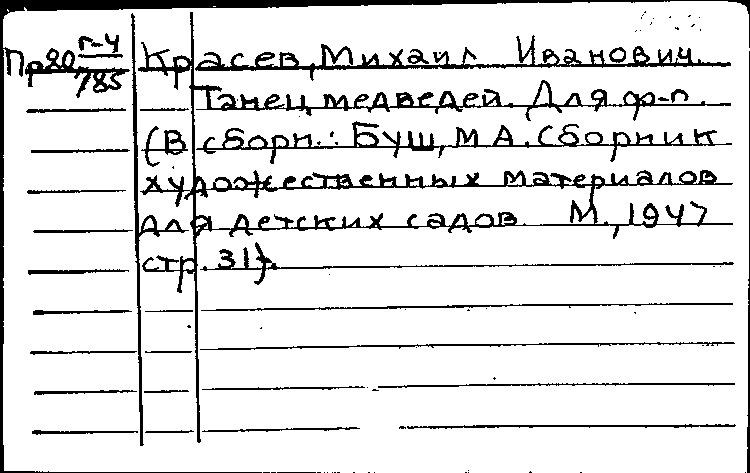 Пр80 г-4/185 Красев, Михаил Иванович.
Танец медведей. Для ф-п.
(В сборн.: Буш, М А. Сборник
художественных материалов
для детских садов М., 1947
стр. 31).